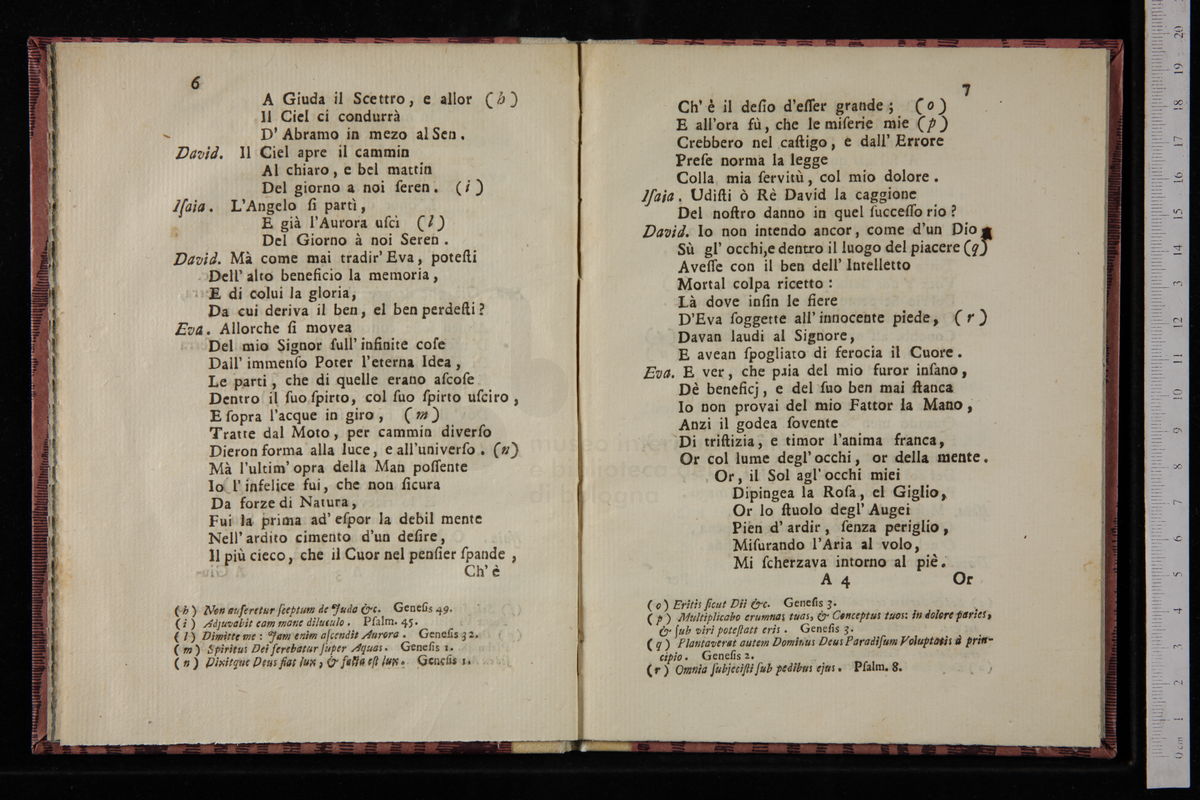 6
A Giuda il Scettro, e allor (h)
Il Ciel ci condurrà
D' Abramo in mezo al Sen.
David. Il Ciel apre il cammin
Al chiaro, e bel mattin
Del giorno a noi seren. (i)
Isaia. L'Angelo si partì,
E già l'Aurora uscì (l)
Del Giorno à noi Seren.
David. Mà come mai tradir' Eva, potesti
Dell' alto beneficio la memoria,
E di colui la gloria,
Da cui deriva il ben, el ben perdesti?
Eva. Allorche si movea
Del mio Signor sull' infinite cose
Dall' immenso Poter l'eterna Idea,
Le parti, che di quelle erano ascose
Dentro il suo spirto, col suo spirto usciro,
E sopra l'acque in giro, (m)
Tratte dal Moto, per cammin diverso
Dieron forma alla luce, e all'universo. (n)
Mà l'ultim' opra della Man possente
Io l' infelice fui, che non sicura
Da forze di Natura,
Fui la prima ad' espor la debil mente
Nell' ardito cimento d'un desire,
Il più cieco, che il Cuor nel pensier spande,
Ch' è
(h) Non auferetur sceptum de Juda &c. Genesis 49.
(i) Adjuvabit eam mane diluculo. Psalm. 45.
(l) Dimitte me: Jam enim ascendit Aurora. Genesis 32.
(m) Spiritus Dei ferebatur super Aquas. Genesis 1.
(n) Dixitque Deus fiat lux, & facta est lux. Genesis 1.
7
Ch' è il desio d'esser grande; (o)
E all'ora fù, che le miserie mie (p)
Crebbero nel castigo, e dall' Errore
Prese norma la legge
Colla mia servitù, col mio dolore.
Isaia. Udisti ò Rè David la caggione
Del nostro danno in quel successo rio?
David. Io non intendo ancor, come d'un Dio
Sù gl' occhi, e dentro il luogo del piacere (q)
Avesse con il ben dell' Intelletto
Mortal colpa ricetto:
Là dove insin le fiere
D'Eva soggette all' innocente piede, (r)
Davan laudi al Signore,
E avean spogliato di ferocia il Cuore.
Eva. E ver, che paia del mio furor insano,
Dè beneficj, e del suo ben mai stanca
Io non provai del mio Fattor la Mano,
Anzi il godea sovente
Di tristizia, e timor l'anima franca,
Or col lume degl' occhi, or della mente.
Or, il Sol agl' occhi miei
Dipingea la Rosa, el Giglio,
Or lo stuolo degl' Augei
Pien d' ardir, senza periglio,
Misurando l'Aria al volo,
Mi scherzava intorno al piè.
A 4 Or
(o) Eritis sicut Dii &c. Genesis 3.
(p) Multiplicabo erumnas tuas, & Conceptus tuos: in dolore paries,
& sub viri potestate eris. Genesis 3.
(q) Plantaverat autem Dominus Deus Paradisum Voluptatis à prin-
cipio. Genesis 2.
(r) Omnia subjecisti sub pedibus ejus. Psalm. 8.